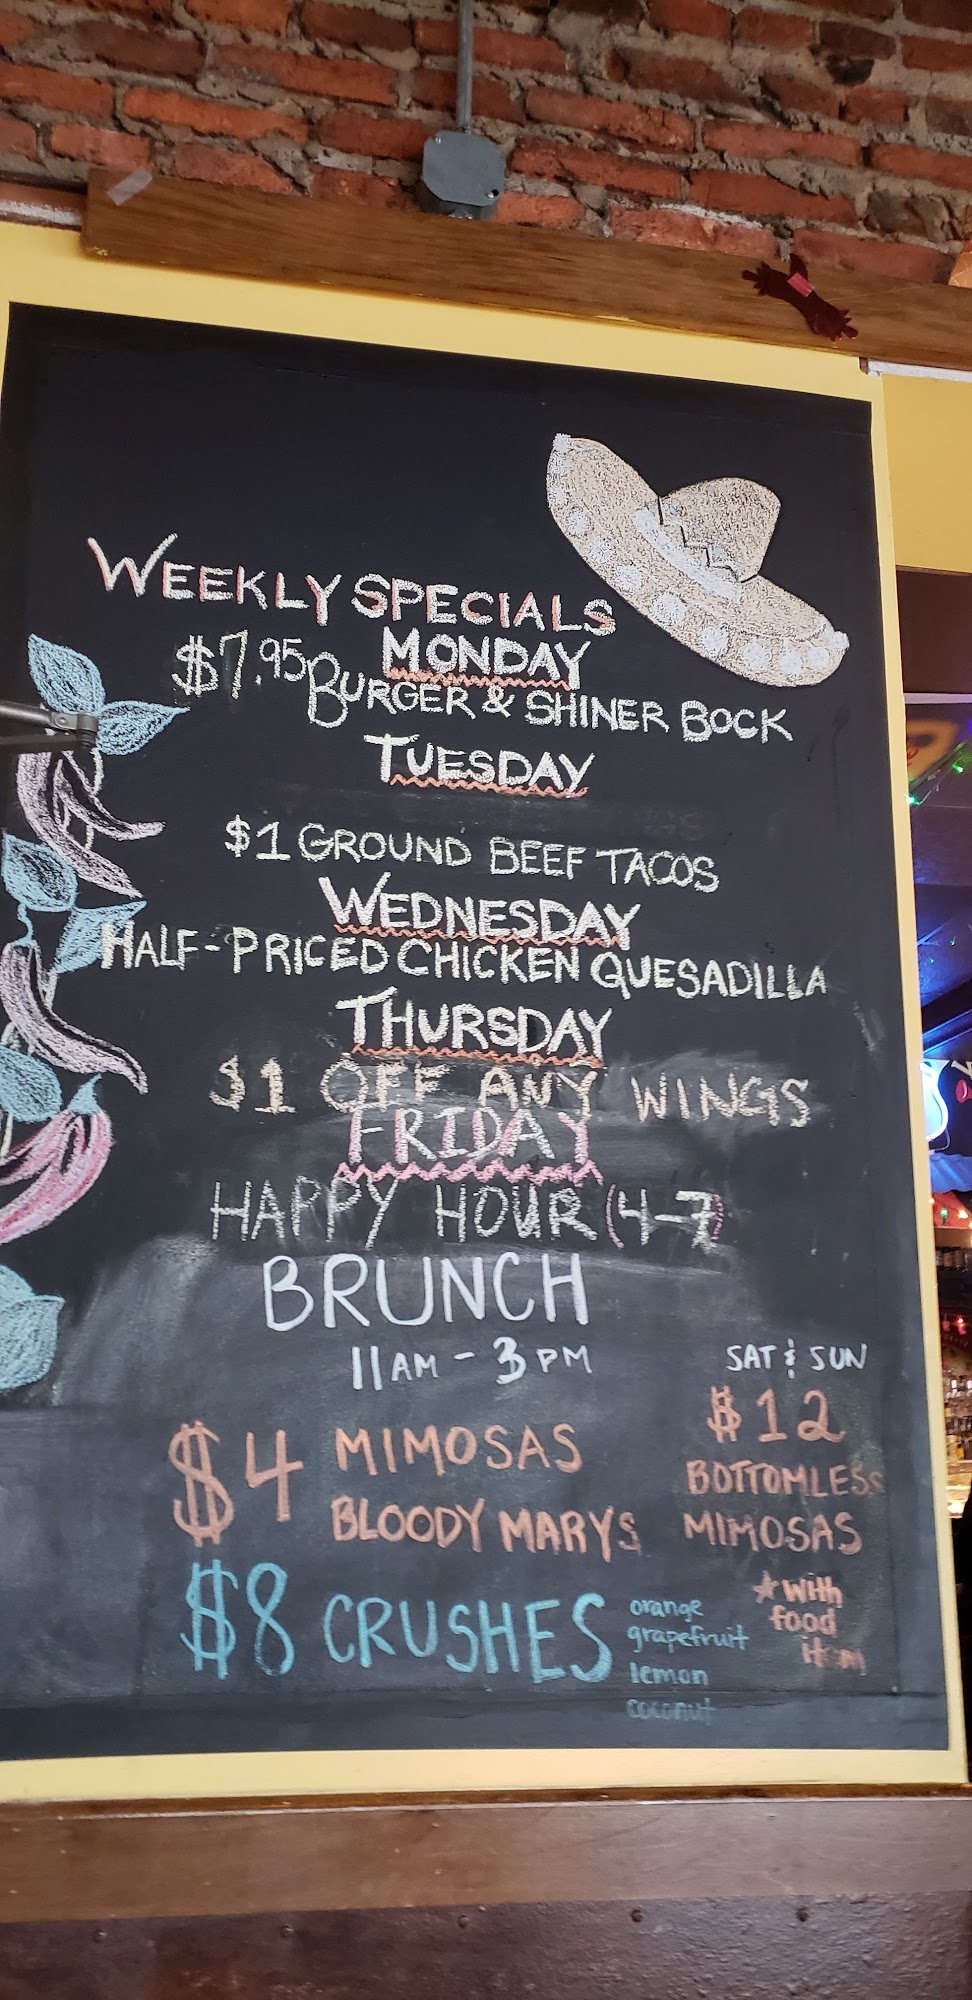 WEEKLY SPECIALS
MONDAY
$7.95 BURGER & SHINER BOCK
TUESDAY
$1 GROUND BEEF TACOS
WEDNESDAY
HALF-PRICED CHICKEN QUESADILLA
THURSDAY
$1 OFF ANY WINGS
FRIDAY
HAPPY HOUR (4-7)
BRUNCH
11AM - 3PM
$4 MIMOSAS
BLOODY MARYS
$8 CRUSHES
orange
grapefruit
lemon
coconut
SAT & SUN
$12
BOTTOMLESS
MIMOSAS
★ with
food
item